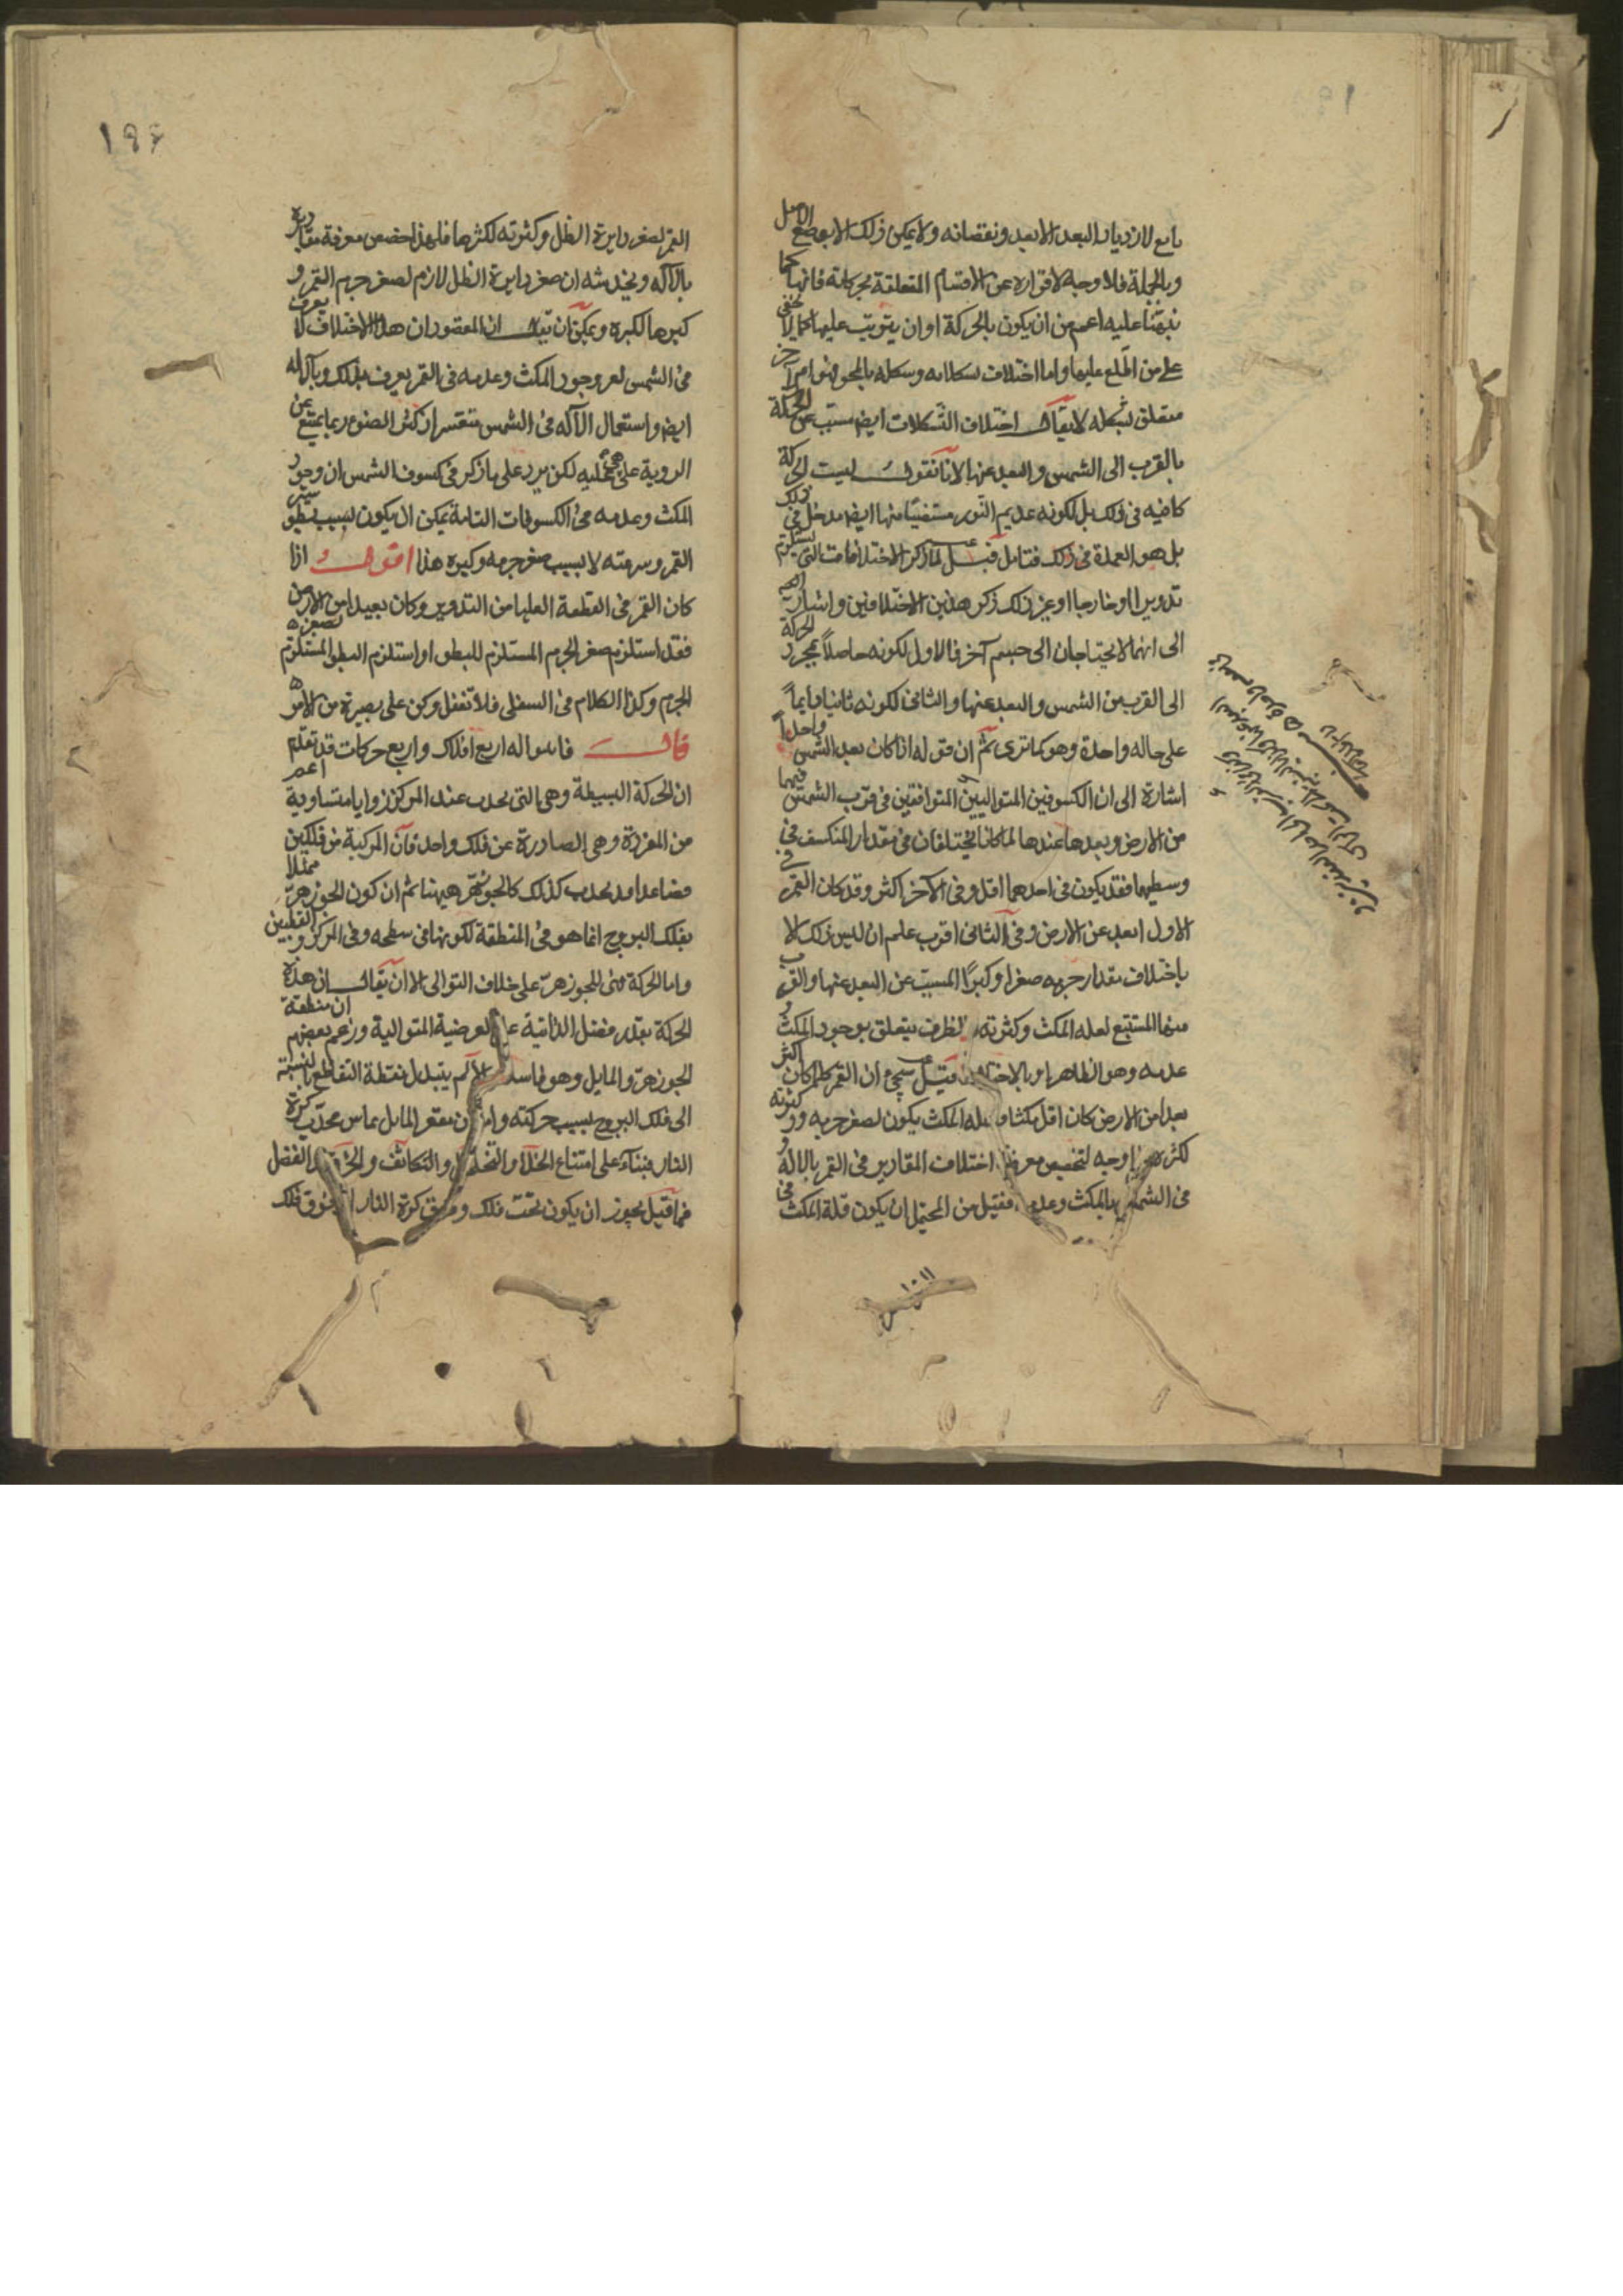 تابع لازدياد البعد الابعد ونقصانه ولا يمكن ذلك الا بوضع الاصل
وبالجملة فلا وجه لافراده عن الاقسام المتعلقة بحركاته فانها كما
نبهنا عليه اعم من ان يكون بالحركة او ان يترتب عليها كما لا يخفى
على من اطلع عليها واما اختلاف تشكلاته وشكله بالمحو فهو امر آخر
متعلق بشكله لا يقال اختلاف التشكلات ايض مسبب عن الحركة
بالقرب الى الشمس والبعد عنها لانا نقول ليست الحركة
كافيه فى ذلك بل لكونه عديم النور مستضيئا منها ايض مدخل فى ذلك
بل هو العمدة فى ذلك فتامل قبل لما ذكر الاختلافات التى يستلزم
تدويرا او خارجا او غير ذلك ذكر هذين الاختلافين واشار
الى انهما لا يحتاجان الى جسم آخر فالاول لكونه حاصلا بمجرد الحركة
الى القرب من الشمس والبعد عنها والثانى لكونه ثابتا دايما
على حاله واحدة وهو كما ترى ثم ان قوله اذا كان بعد الشمس واحدا
اشارة الى ان الكسوفين المتواليين المتوافقين فى قرب الشمس فيهما
من الارض وبعدها عندها لما كانا يختلفان فى مقدار المنكسف فى
وسطيهما فقد يكون فى احدهما اقل وفى الآخر اكثر وقد كان القمر فى
الاول ابعد عن الارض وفى الثانى اقرب علم ان ليس ذلك الا
باختلاف مقدار جرمه صغرا وكبرا المسبب عن البعد عنها والقرب
منها المستتبع لعله المكث وكثرته الظرف يتعلق بوجود المكث و
عدمه وهو الظاهر او بالاختلاف قيل سيجى ان القمر كلما كان اكثر
بعدا من الارض كان اقل مكثا وقله المكث يكون لصغر جرمه وكثرته
لكثر وجه لتخصيص معرفة اختلاف المقادير فى القمر بالاله و
فى الشمس بالمكث وعدمه فقيل من المحتمل ان يكون قلة المكث فى
١٠١١
١٩٤
القمر لصغر دايرة الظل وكثرته لكثرها فلهذا خصص معرفة مقاديره
بالآله ويخدشه ان صغر دايرة الظل لازم لصغر جرم القمر و
كبرها لكبره ويمكن ان يقال ان المقصود ان هذا الاختلاف لا يعرف
فى الشمس لعد وجود المكث وعدمه فى القمر يعرف بذلك وبآلاله
ايض واستعمال الآله فى الشمس متعسر اذ كثر الضوء ربما يمنع عن
الروية على لكن يرد على ما ذكر فى كسوف الشمس ان وجود
المكث وعدمه فى الكسوفات التامة يمكن ان يكون بسبب بطو سير
القمر وسرعته لا بسبب صغر جرمه وكبره هذا اقول اذا
كان القمر فى القطعة العليا من التدوير وكان بعيدا من الارض
فقد استلزم صغر الجرم المستلزم للبطو او استلزم البطو المستلزم لصغره
الجرم وكذا الكلام فى السفلى فلا تغفل وكن على بصيرة من الامر
قال فاسواله اربع افلاك واربع حركات قد تقدم
ان الحركة البسيطة وهى التى يحدث عند المركز زوايا متساوية اعم
من المفردة وهى الصادرة عن فلك واحد فان المركبة من فلكين
فصاعدا قد يحدث كذلك كالجوزهر هيهنا ثم ان كون الجوزهر ممثلا
بفلك البروج انما هو فى المنطقة لكونها فى سطحه وفى المركز والقطبين
واما الحركة فهى للجوزهر على خلاف التوالى الا ان يقال ان هذه
الحركة بقدر فضل الذاتية على العرضية المتوالية وزعم بعضهم ان منطقة
الجوزهر والمايل وهو فاسد لم يتبدل نقطة التقاطع بالنسبة
الى فلك البروج بسبب حركته وان مقعر المايل يماس محدب كرة
النار فبناء على امتناع الخلاء والتخلخل والتكاثف والخرق والفضل
فما قيل يجوز ان يكون تحت فلك وفوق كرة النار فوق فلك